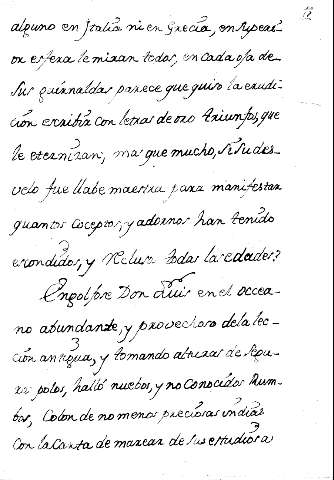 alguno en Italia ni en Grecia, en superi-
or esfera le miran todos, en cada oja de
sus guirnaldas parece que quiso la erudi-
ción escribir con letras de oro triunfos, que
le eternizan, mas que mucho, si su des-
velo fue llabe maestra para manifestar
quantos coceptos, y adornos han tenido
escondidos, y reclusos todas las edades?
Engolfose Don Luis en el occea-
no abundante, y provechoso de la lec-
ción antigua, y tomando alturas de
polos, halló nuebos, y no conocidos Rum-
bos, Colon de no menos preciosas indias
con la Carta de marear de sus estudiosa